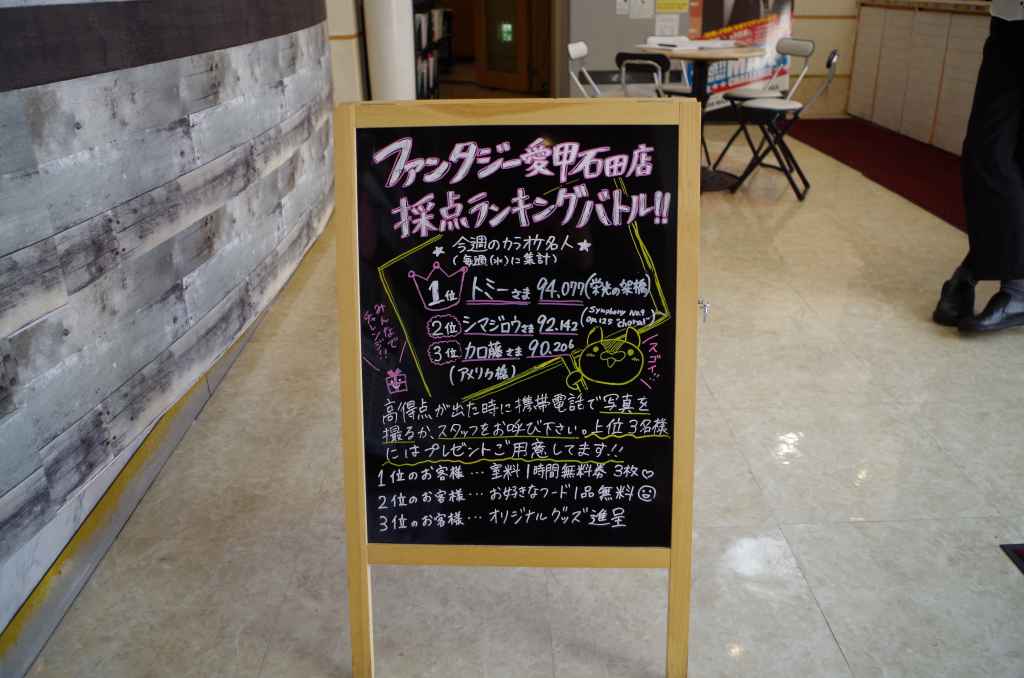 ファンタジー愛甲石田店
採点ランキングバトル!!
★今週のカラオケ名人★
(毎週(水)に集計)
1位 トミーさま 94,077(栄光の架橋)
2位 シマジロウさま 92.142(Symphony No.9 Op.125 "choral")
3位 加藤さま 90.206
(アメリカ橋)
みんなで
チャレンジ!!
スゴイ!!
高得点が出た時に携帯電話で写真を
撮るか、スタッフをお呼び下さい。上位3名様
にはプレゼントご用意してます!!
1位のお客様…室料1時間無料券 3枚♡
2位のお客様…お好きなフード1品無料☺
3位のお客様…オリジナルグッズ進呈